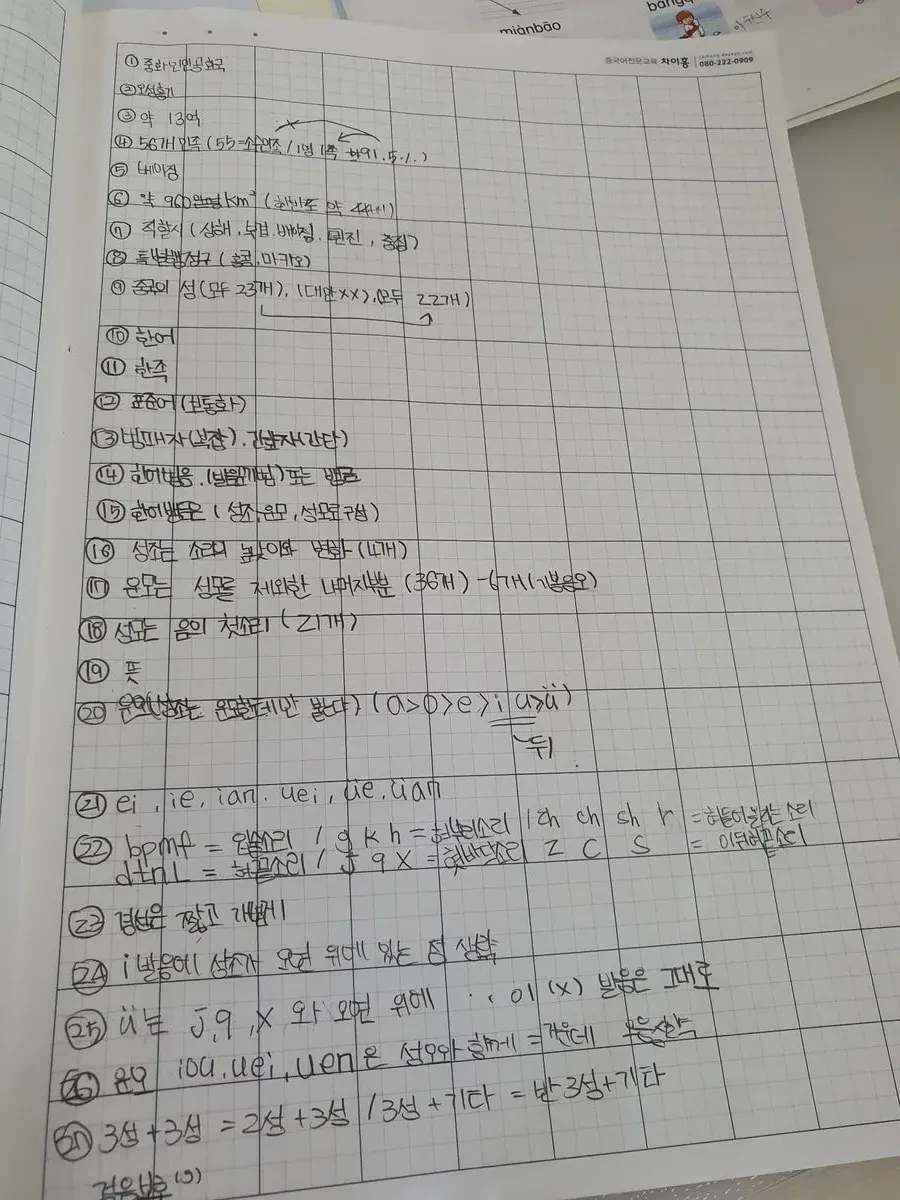 miànbāo
중국어전문교육 차이홍 080-222-0909
① 중화인민공화국
② 오성홍기
③ 약 13억
④ 56개 민족 (55=소수민족 / 1명 1족 91.5%)
⑤ 베이징
⑥ 약 960만 km² (한반도 약 44배)
⑦ 직할시 (상해, 베이징, 텐진, 충칭)
⑧ 특별행정구 (홍콩,마카오)
⑨ 중국의 성 (모두 23개), (대만 XX), (모두 22개)
⑩ 한어
⑪ 한족
⑫ 표준어 (보통화)
⑬ 번체자 (복잡). 간화자 (간단)
⑭ 한어병음. 또는 병음
⑮ 한어병음은 (성조,운모,성모로 구성)
⑯ 성조는 소리의 높낮이와 변화 (4개)
⑰ 운모는 성모를 제외한 나머지부분 (36개) - 6개 (기본음오)
⑱ 성모는 음의 첫소리 (21개)
⑲ 뜻
⑳ 운모 (성조는 운모한테만 붙는다) (a>o>e>i u>ü)
뒤
㉑ ei, ie, ian. uei, üe, üan
㉒ bpmf = 입술소리 / g k h = 혀뿌리소리 / zh ch sh r = 혀들어올리는 소리
dtnl = 혀끝소리 / j q x = 혓바닥소리 z c s = 이뒤혀끝소리
㉓ 경성은 짧고 가볍게
㉔ i 발음에 성조가 오면 위에 있는 점 생략
㉕ ü는 j,q,x 와 오면 위에 ··이 (x) 발음은 그대로
㉖ 운모 iou, uei, uen은 성모와 함께 = 가운데 모음생략
㉗ 3성+3성 = 2성+3성 / 3성+기타 = 반3성+기타